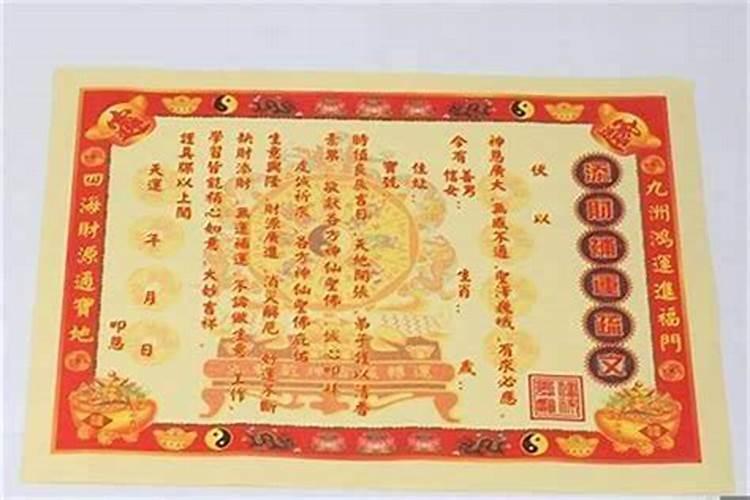 九洲鴻運進福門
添財補運疏文
伏以
神恩廣大 無感不通 聖澤巍峨 有求必應
今有 善男 信女: 生肖: 歲:
住址:
寶號:
時值良辰吉日 天地開張 弟子以清香
素果 敬獻各方神仙聖佛 誠心叩拜
虔誠祈求 各方神仙聖佛庇佑
生意興隆 財源廣進 消災解厄 好運不斷
缺財添財 無運補運 不論做生意、工作、
學習皆能稱心如意 大妙吉祥
謹具疏以上聞
天運 年 月 日
叩恩
四海財源通寶地